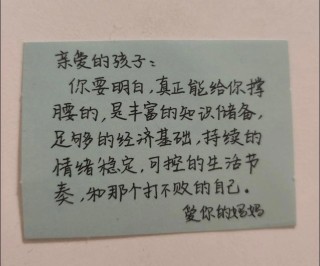 亲爱的孩子：
你要明白，真正能给你撑
腰的，是丰富的知识储备，
足够的经济基础，持续的
情绪稳定，可控的生活节
奏，和那个打不败的自己。
爱你的妈妈